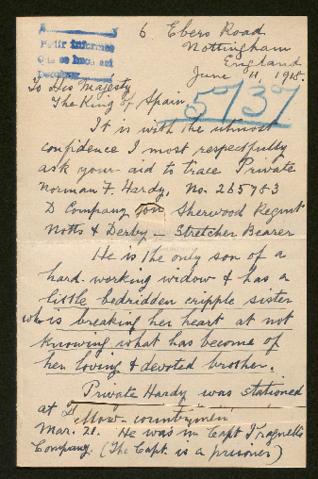 6 Ebers Road
Nottingham
England
June 11, 1918.
To His Majesty
The King of Spain
5737
It is with the utmost
confidence I most respectfully
ask your aid to trace Private
Norman F. Hardy, No. 265783
D Company Sherwood Regmt
Notts & Derby – Stretcher Bearer
He is the only son of a
hard-working widow & has a
little bedridden cripple sister
who is breaking her heart at not
knowing what has become of
her loving & devoted brother.
Private Hardy was stationed
at
Mar. 21. He was in Capt
Company. (The Capt. is a prisoner)